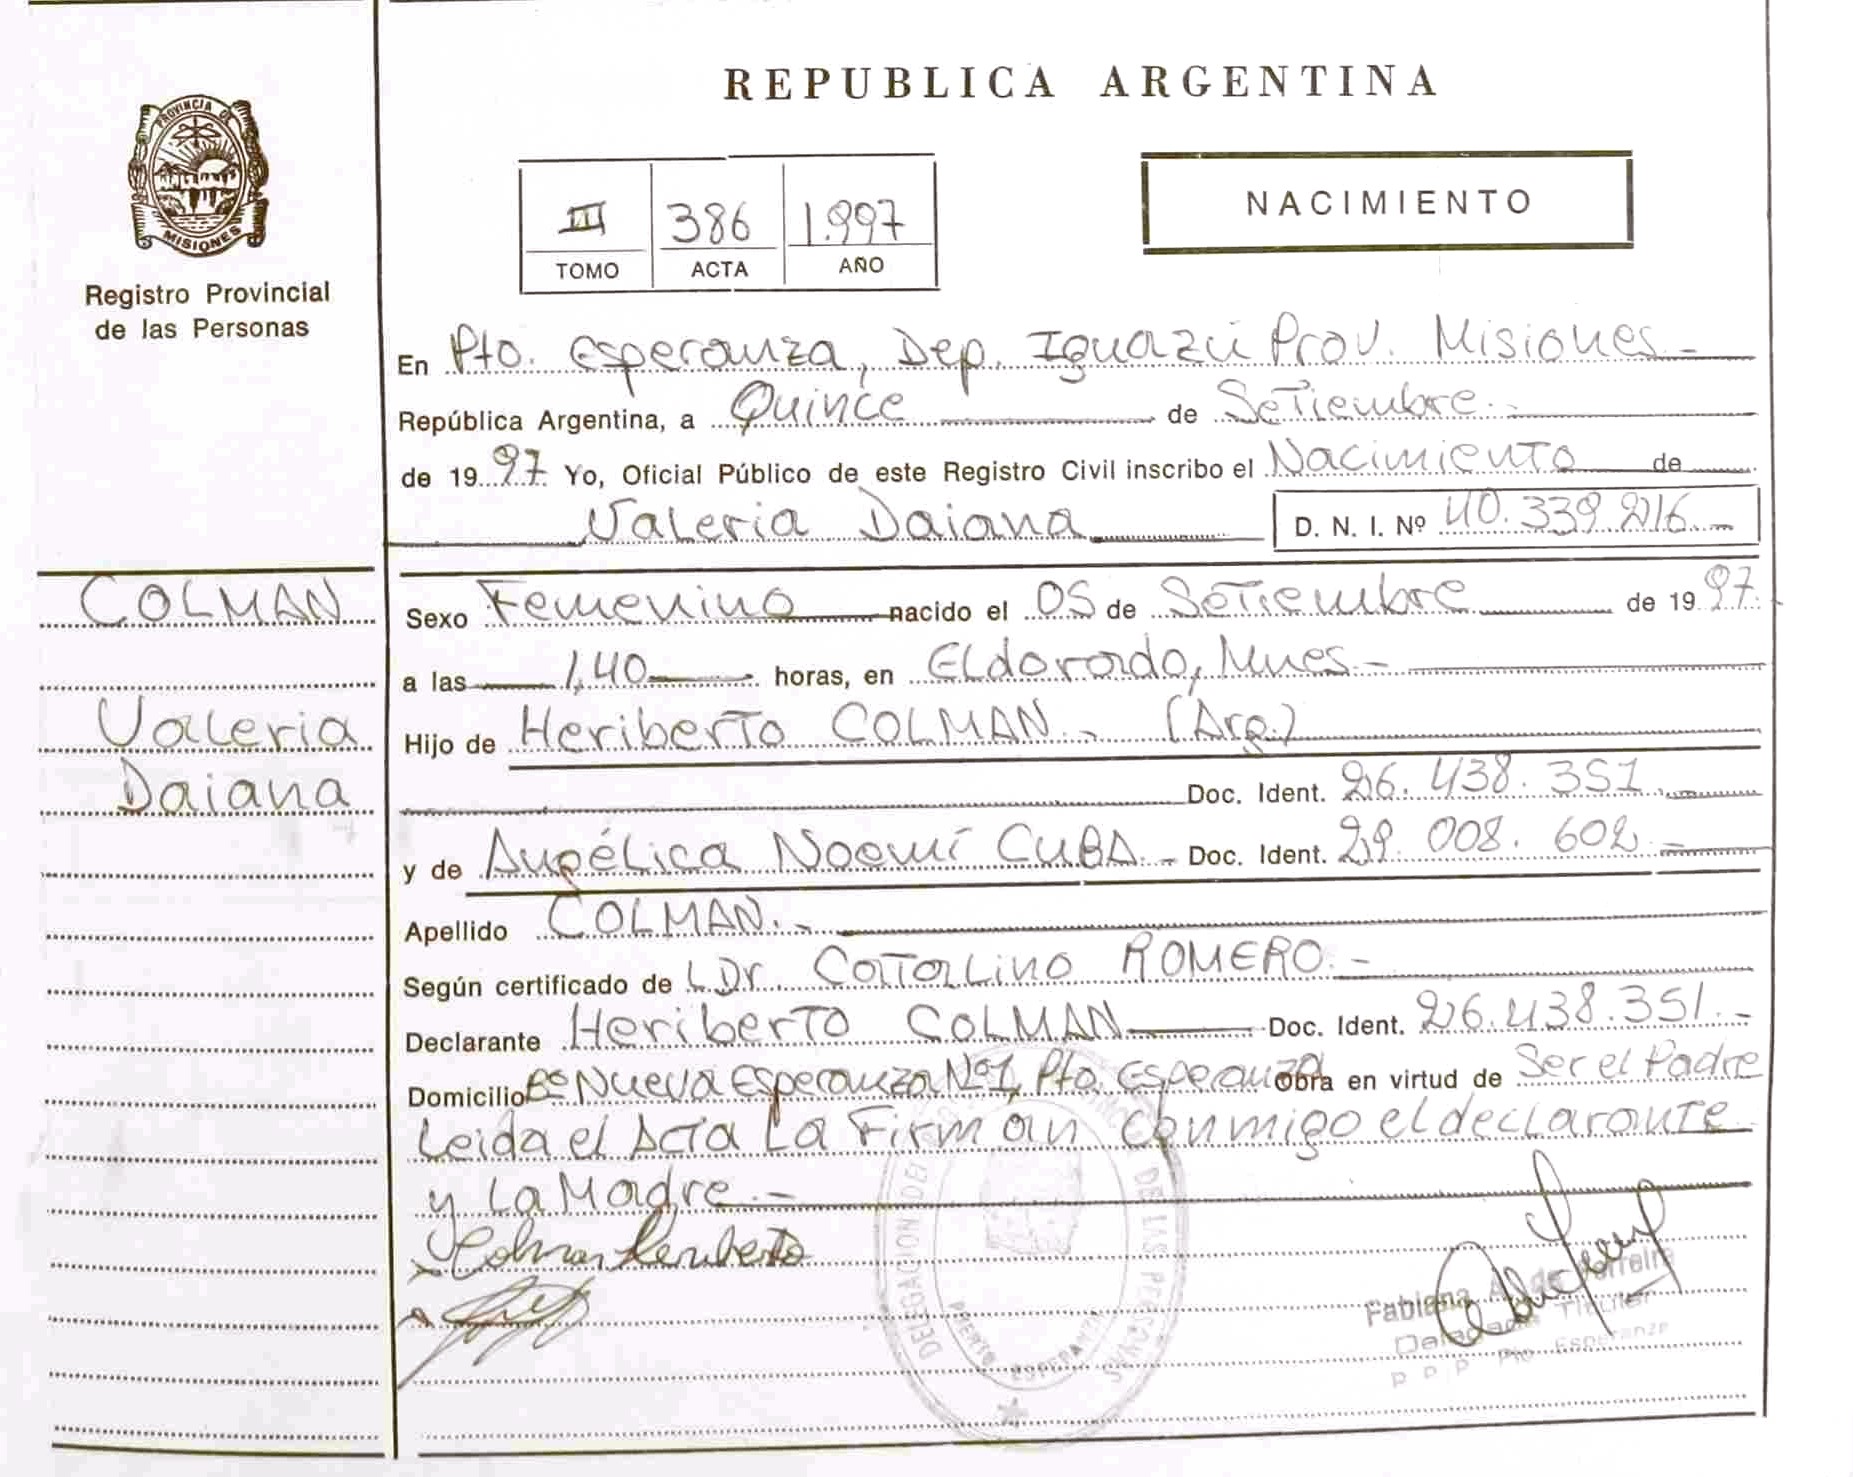 REPUBLICA ARGENTINA
PROVINCIA DE
MISIONES
Registro Provincial
de las Personas
III 386 1.997
TOMO ACTA AÑO
NACIMIENTO
En Pto. Esperanza, Dep. Iguazú Prov. Misiones.-
República Argentina, a Quince de Setiembre.-
de 1997. Yo, Oficial Público de este Registro Civil inscribo el Nacimiento de
Valeria Daiana D. N. I. Nº 40.339.216.-
COLMAN
Valeria
Daiana
Sexo Femenino nacido el 05 de Setiembre de 1997.
a las 1,40 horas, en Eldorado, Mnes.-
Hijo de Heriberto COLMAN.- (Arg.)
Doc. Ident. 26.438.351.-
y de Angélica Noemí CUBA.- Doc. Ident. 29.008.602.-
Apellido COLMAN.-
Según certificado de L Dr. Catalino ROMERO.-
Declarante Heriberto COLMAN Doc. Ident. 26.438.351.-
Domicilio Bº Nueva Esperanza Nº1, Pto. Esperanza obra en virtud de Ser el Padre
Leida el Acta La Firman Conmigo el declarante
y La Madre.-
Colman Heriberto
DELEGACION DE LAS PERSONAS
PUERTO ESPERANZA
Fabiana Ferreira
Delegada Titular
Pto Esperanza